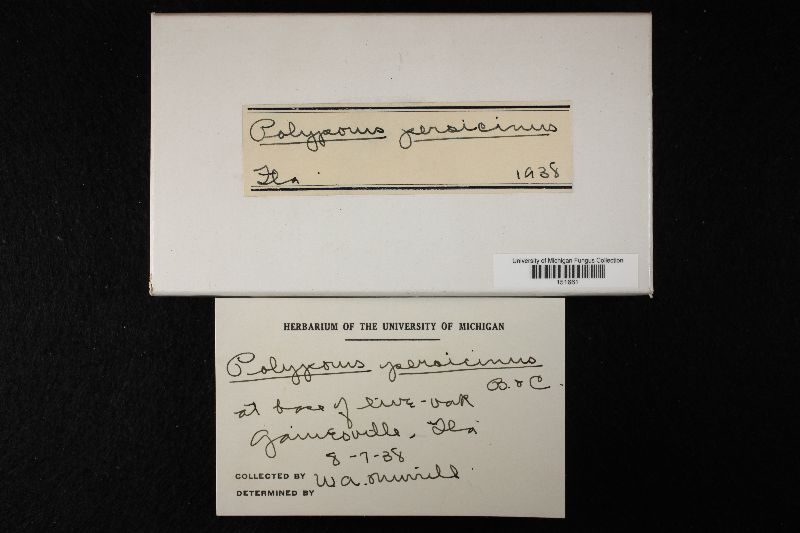 Polyporus persicinus
Fla. 1938
University of Michigan Fungus Collection
151861
HERBARIUM OF THE UNIVERSITY OF MICHIGAN
Polyporus persicinus
B. & C.
at base of live-oak
Gainesville, Fla
8-7-38
COLLECTED BY W A. Murrill
DETERMINED BY